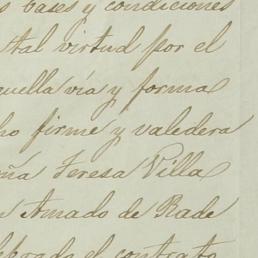 s bases y condiciones
tal virtud por el
quella vía y forma
ho firme y valedera
ña Teresa Villa
n Amado de Rade
lebrado el contrato